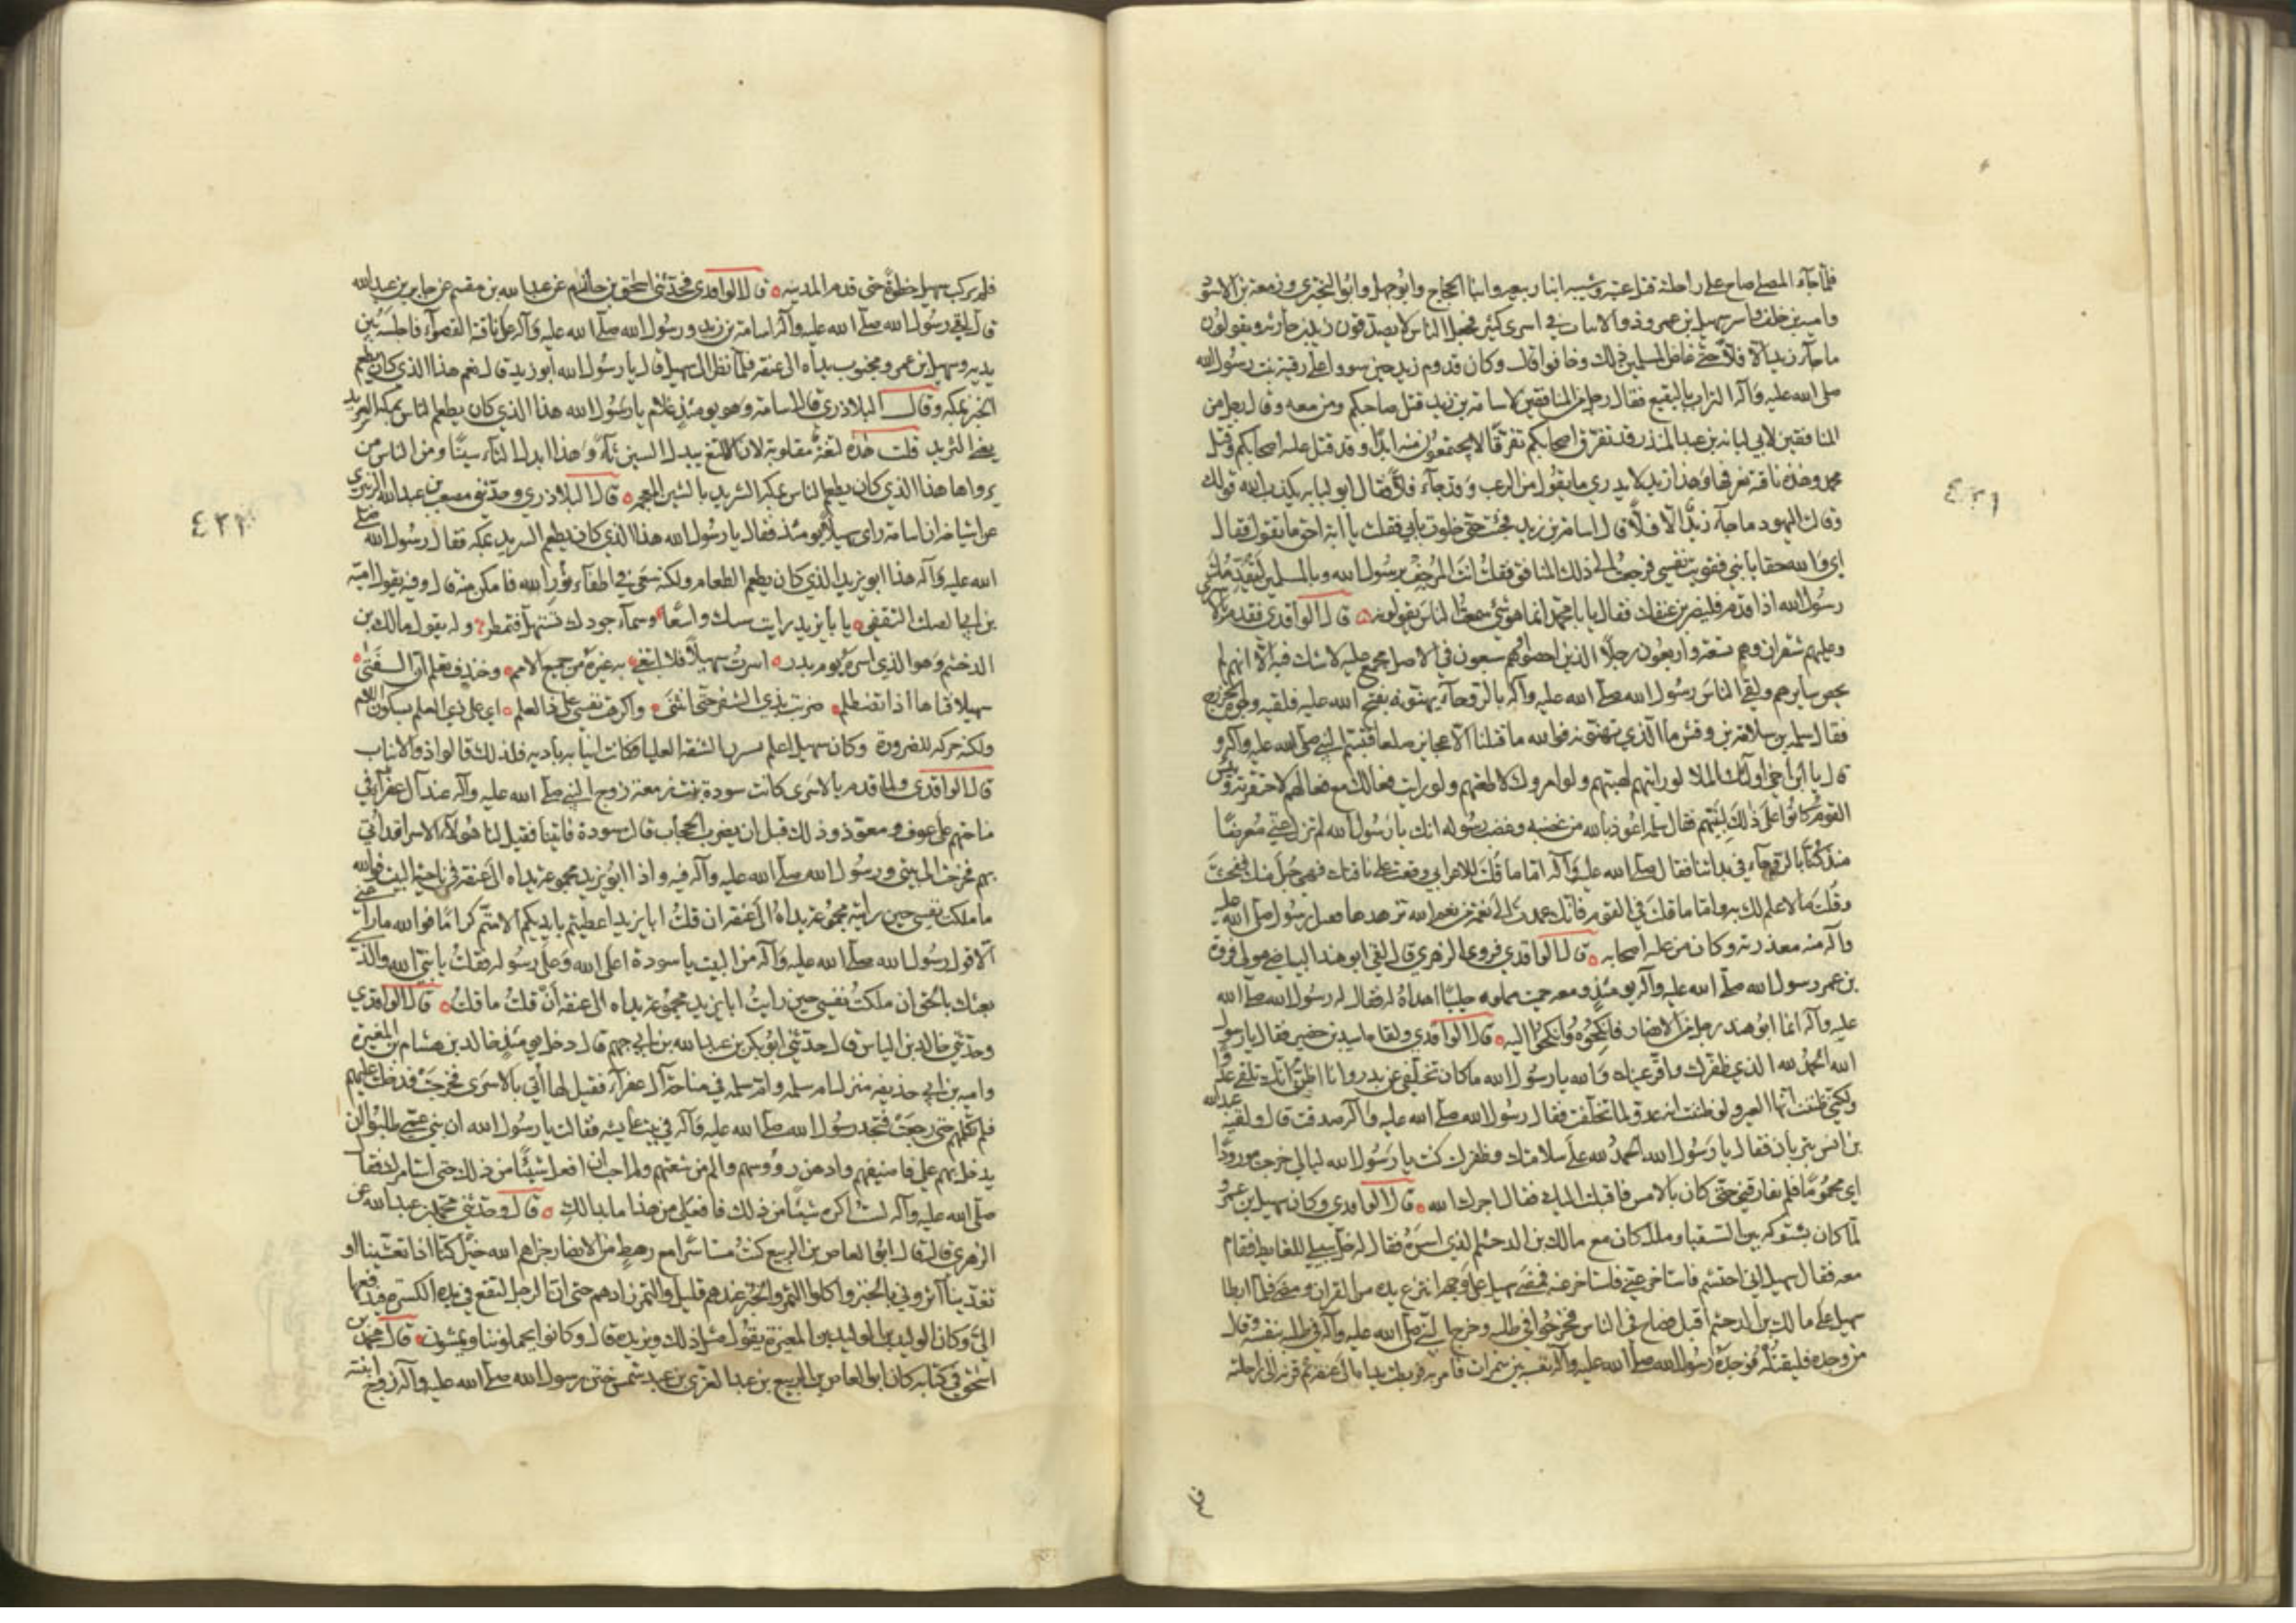 فلما جاء المصلى صاح على راحلته قتل عتبة وشيبة ابنا ربيعه وابنا الحجاج وابو جهل وابو البختري وزمعة بن الاسود
وامية بن خلف واسر سهيل بن عمرو ذو الانياب في اسرى كثير فجعل الناس لا يصدقون زيد بن حارثه ويقولون
ما جاء زيد الا فلا حتى غاظ المسلمين ذلك وخافوا قال وكان قدوم زيد حين سووا على رقية بنت رسول الله
صلى الله عليه وآله التراب بالبقيع فقال رجل من المنافقين لاسامة بن زيد قتل صاحبكم ومن معه وقال رجل من
المنافقين لابي لبابه بن عبد المنذر قد تفرق اصحابكم تفرقا لا يجتمعون منه ابدا وقد قتل عليه اصحابكم وقتل
محمد وهذه ناقته نعرفها وهذا زيد لا يدري ما يقول من الرعب وقد جاء فلا فقال ابو لبابه يكذب الله قولك
وقالت اليهود ما جاء زيد الا فلا قال اسامة بن زيد فجئت حتى خلوت بابي فقلت يا ابة احق ما تقول فقال
اي والله حقا يا بني فقويت نفسي فرجعت الى ذلك المنافق فقلت انت المرجف برسول الله وبالمسلمين ليقدمنك
رسول الله اذا قدم فليضربن عنقك فقال يا با محمد انما هو شيء سمعت الناس يقولونه قال الواقدي فقدم بالاسرى
وعليهم شقران وهم تسعة واربعون رجلا الذين احصوا وهم سبعون في الاصل مجمع عليه لا شك فيه الا انهم لم
يحص سايرهم ولقي الناس رسول الله صلى الله عليه وآله بالروحاء يهنئونه بفتح الله عليه فلقيه وجوه الخزرج
فقال سلمه بن سلامة بن وقش ما الذي تهنئونه فوالله ما قتلنا الا عجايز صلعا فتبسم النبي صلى الله عليه وآله و
قال يا ابن اخي اولئك الملا لو رايتهم لهبتهم ولو امروك لاطعتهم ولو رايت فعالك مع فعالهم لاحتقرته وبئس
القوم كانوا على ذلك لنبيهم فقال سلمه اعوذ بالله من غضبه وغضب رسوله انك يا رسول الله لم تزل عني معرضا
منذ كنا بالروحاء في بداتنا فقال صلى الله عليه وآله اما ما قلت للاعرابي وقعت على ناقتك فهي حبلى منك ففحشت
وقلت ما لا علم لك به واما ما قلت في القوم فانك عمدت الى نعمة من نعم الله تزهدها فقبل رسول الله صلى الله عليه
وآله منه معذرته وكان من علية اصحابه قال الواقدي فروى الزهري قال لقي ابو هند البياضي مولى فروة
بن عمرو رسول الله صلى الله عليه وآله يومئذ ومعه حميت مملوء حيسا اهداه له فقال له رسول الله صلى الله
عليه وآله انما ابو هند رجل من الانصار فانكحوه وانكحوا اليه قال الواقدي ولقاه اسيد بن حضير فقال يا رسول
الله الحمد لله الذي ظفرك واقر عينك والله يا رسول الله ما كان تخلفي عن بدر وانا اظن انك تلقى عدوا
ولكني ظننت انها العير ولو ظننت انه عدو لما تخلفت فقال رسول الله صلى الله عليه وآله صدقت قال ولقيه عبد الله
بن انيس بتربان فقال يا رسول الله الحمد لله على سلامتك وظفرك كنت يا رسول الله ليالي خرجت مورودا
اي محموما فلم تفارقني حتى كان بالامس فاقبلت اليك فقال اجرك الله قال الواقدي وكان سهيل بن عمرو
لما كان بشنوكه بين السقيا وملل كان مع مالك بن الدخشم الذي اسره فقال له خل سبيلي للغايط فقام
معه فقال سهيل اني احتشم فاستاخر عني فاستاخر عنه فمضى سهيل على وجهه انتزع يده من القران ومضى فلما ابطا
سهيل على مالك بن الدخشم اقبل فصاح في الناس فخرجوا في طلبه وخرج النبي صلى الله عليه وآله في طلبه بنفسه وقال
من وجده فليقتله فوجده رسول الله صلى الله عليه وآله بنفسه بين سمرات فامر به فربطت يداه الى عنقه ثم قرنه الى راحلته
فلم
٤٣١
فلم يركب سهيل خطوة حتى قدم المدينه قال الواقدي فحدثني اسحق بن حازم عن عبد الله بن مقسم عن جابر بن عبد الله
قال لقي رسول الله صلى الله عليه وآله اسامة بن زيد ورسول الله صلى الله عليه وآله على ناقته القصواء فاجلسه بين
يديه وسهيل بن عمرو مجنوب يداه الى عنقه فلما نظر الى سهيل قال يا رسول الله ابو يزيد قال نعم هذا الذي كان يطعم
الخبز بمكه وقال البلاذري قال اسامة وهو يومئذ غلام يا رسول الله هذا الذي كان يطعم الناس بمكه السريد
يعني الثريد قلت هذه لثغة مقلوبة لان الالثغ يبدل السين ثاء وهذا ابدل الثاء سينا ومن الناس من
يرويها هذا الذي كان يطعم الناس بمكه الشريد بالشين المعجمه قال البلاذري وحدثني مصعب بن عبد الله الزبيري
عن اشياخه ان اسامة راى سهيلا يومئذ فقال يا رسول الله هذا الذي كان يطعم السريد بمكه فقال رسول الله صلى
الله عليه وآله هذا ابو يزيد الذي كان يطعم الطعام ولكنه سعى في اطفاء نور الله فامكن منه قال وفيه يقول اميه
بن ابي الصلت الثقفي يا با يزيد رايت سيبك واسعا وسماء جودك تستهل فتمطر وله يقول مالك بن
الدخشم وهو الذي اسره يوم بدر اسرت سهيلا فلا ابتغي به غيره من جميع الامم وخندف تعلم ان الفتى
سهيلا فتاها اذا تظلم ضربت بذي الشفر حتى انثنى واكرهت نفسي على ذي العلم اي على ذي العلم بسكون اللام
ولكنه حركه للضرورة وكان سهيل اعلم مشقوق الشفة العليا فكانت انيابه باديه فلذلك قالوا ذو الانياب
قال الواقدي ولما قدم بالاسرى كانت سودة بنت زمعة زوج النبي صلى الله عليه وآله عند آل عفراء في
مناحتهم على عوف ومعوذ وذلك قبل ان يضرب الحجاب قالت سودة فاتينا فقيل لنا هؤلاء الاسرا قد اتي
بهم فخرجت الى بيتي ورسول الله صلى الله عليه وآله فيه واذا ابو يزيد مجموعة يداه الى عنقه في ناحية البيت فوالله
ما ملكت نفسي حين رايته مجموعة يداه الى عنقه ان قلت ابا يزيد اعطيتم بايديكم الا متم كراما فوالله ما راعني
الا قول رسول الله صلى الله عليه وآله من البيت يا سودة اعلى الله وعلى رسوله فقلت يا نبي الله والذي
بعثك بالحق ان ملكت نفسي حين رايت ابا يزيد مجموعة يداه الى عنقه ان قلت ما قلت قال الواقدي
وحدثني خالد بن الياس قال حدثني ابو بكر بن عبد الله بن ابي جهم قال دخل يومئذ خالد بن هشام بن المغيرة
واميه بن ابي حذيفه منزل ام سلمه وام سلمه في مناحة آل عفراء فقيل لها اتي بالاسرى فخرجت فدخلت عليهم
فلم تكلمهم حتى رجعت فتجد رسول الله صلى الله عليه وآله في بيت عايشه فقالت يا رسول الله ان بني عمي طلبوا ان
يدخل بهم علي فاضيفهم وادهن رؤوسهم والم من شعثهم ولم احب ان افعل شيئا من ذلك حتى استامرك فقال
صلى الله عليه وآله لست اكره شيئا من ذلك فافعلي من هذا ما بدا لك قال وحدثني محمد بن عبد الله عن
الزهري قال قال ابو العاص بن الربيع كنت مستاسرا مع رهط من الانصار جزاهم الله خيرا كنا اذا تعشينا او
تغدينا آثروني بالخبز واكلوا التمر والخبز عندهم قليل والتمر زادهم حتى ان الرجل لتقع في يده الكسرة فيدفعها
الي وكان الوليد بن الوليد بن المغيرة يقول مثل ذلك ويزيده قال وكانوا يحملوننا ويمشون قال محمد بن
اسحق في كتابه كان ابو العاص بن الربيع بن عبد العزى بن عبد شمس ختن رسول الله صلى الله عليه وآله زوج ابنته
٤٣٢